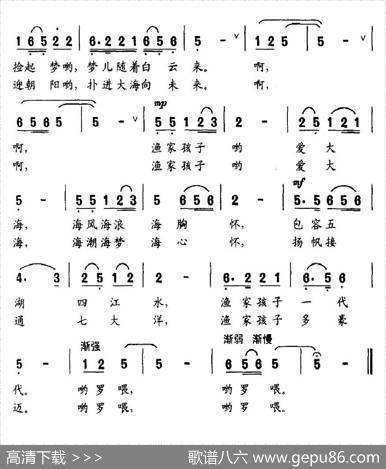 1 6 5 2 2 | 6· 2 2 1 6 5 6 | 5 - ∨ | 1 2 5 | 5 - ∨ |
捡起 梦哟, 梦儿随着白 云 来。 啊,
迎朝 阳哟, 扑进大海向 未 来。 啊,
mp
6 5 6 5 | 5 - ∨ | 5 5 1 2 3 | 2 - | 2 5 1 2 |
啊, 渔家孩子 哟 爱 大
啊, 渔家孩子 哟 爱 大
mf
5 - | 5 5 1 2 3 | 2 1 6 | 2 - | 5· 5 6 5 6 |
海, 海风海浪 海 胸 怀, 包容五
海, 海潮海梦 海 心 怀, 扬帆接
4· 3 | 2 1 2 3 | 2 - | 6· 2 2 1 | 6· 5 6 |
湖 四江 水, 渔家孩子 一代
通 七大 洋, 渔家孩子 多豪
渐强 渐弱 渐慢
5 - | 1 2 5 | 5 - | 6 5 6 5 | 5 - ‖
代。 哟罗 喂, 哟罗 喂。
迈。 哟罗 喂, 哟罗 喂。
高清下载 >>> 歌谱八六 www.gepu86.com